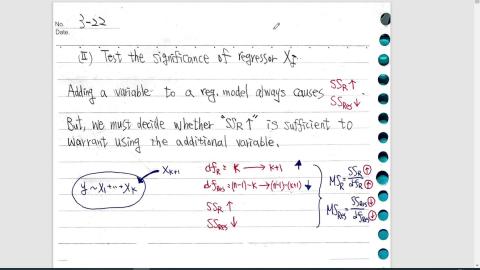 No. 3-22
Date.
(II) Test the significance of regressor Xj
Adding a variable to a reg. model always causes SSR↑
SSRes↓.
But, we must decide whether "SSR↑" is sufficient to
warrant using the additional variable.
y ~ X1+...+XK
XK+1
dfR = K → K+1 ↑
dfRes = (n-1)-K → (n-1)-(K+1) ↓
SSR ↑
SSRes ↓
MSR = SSR↑ / dfR↑
MSRes = SSRes↓ / dfRes↓